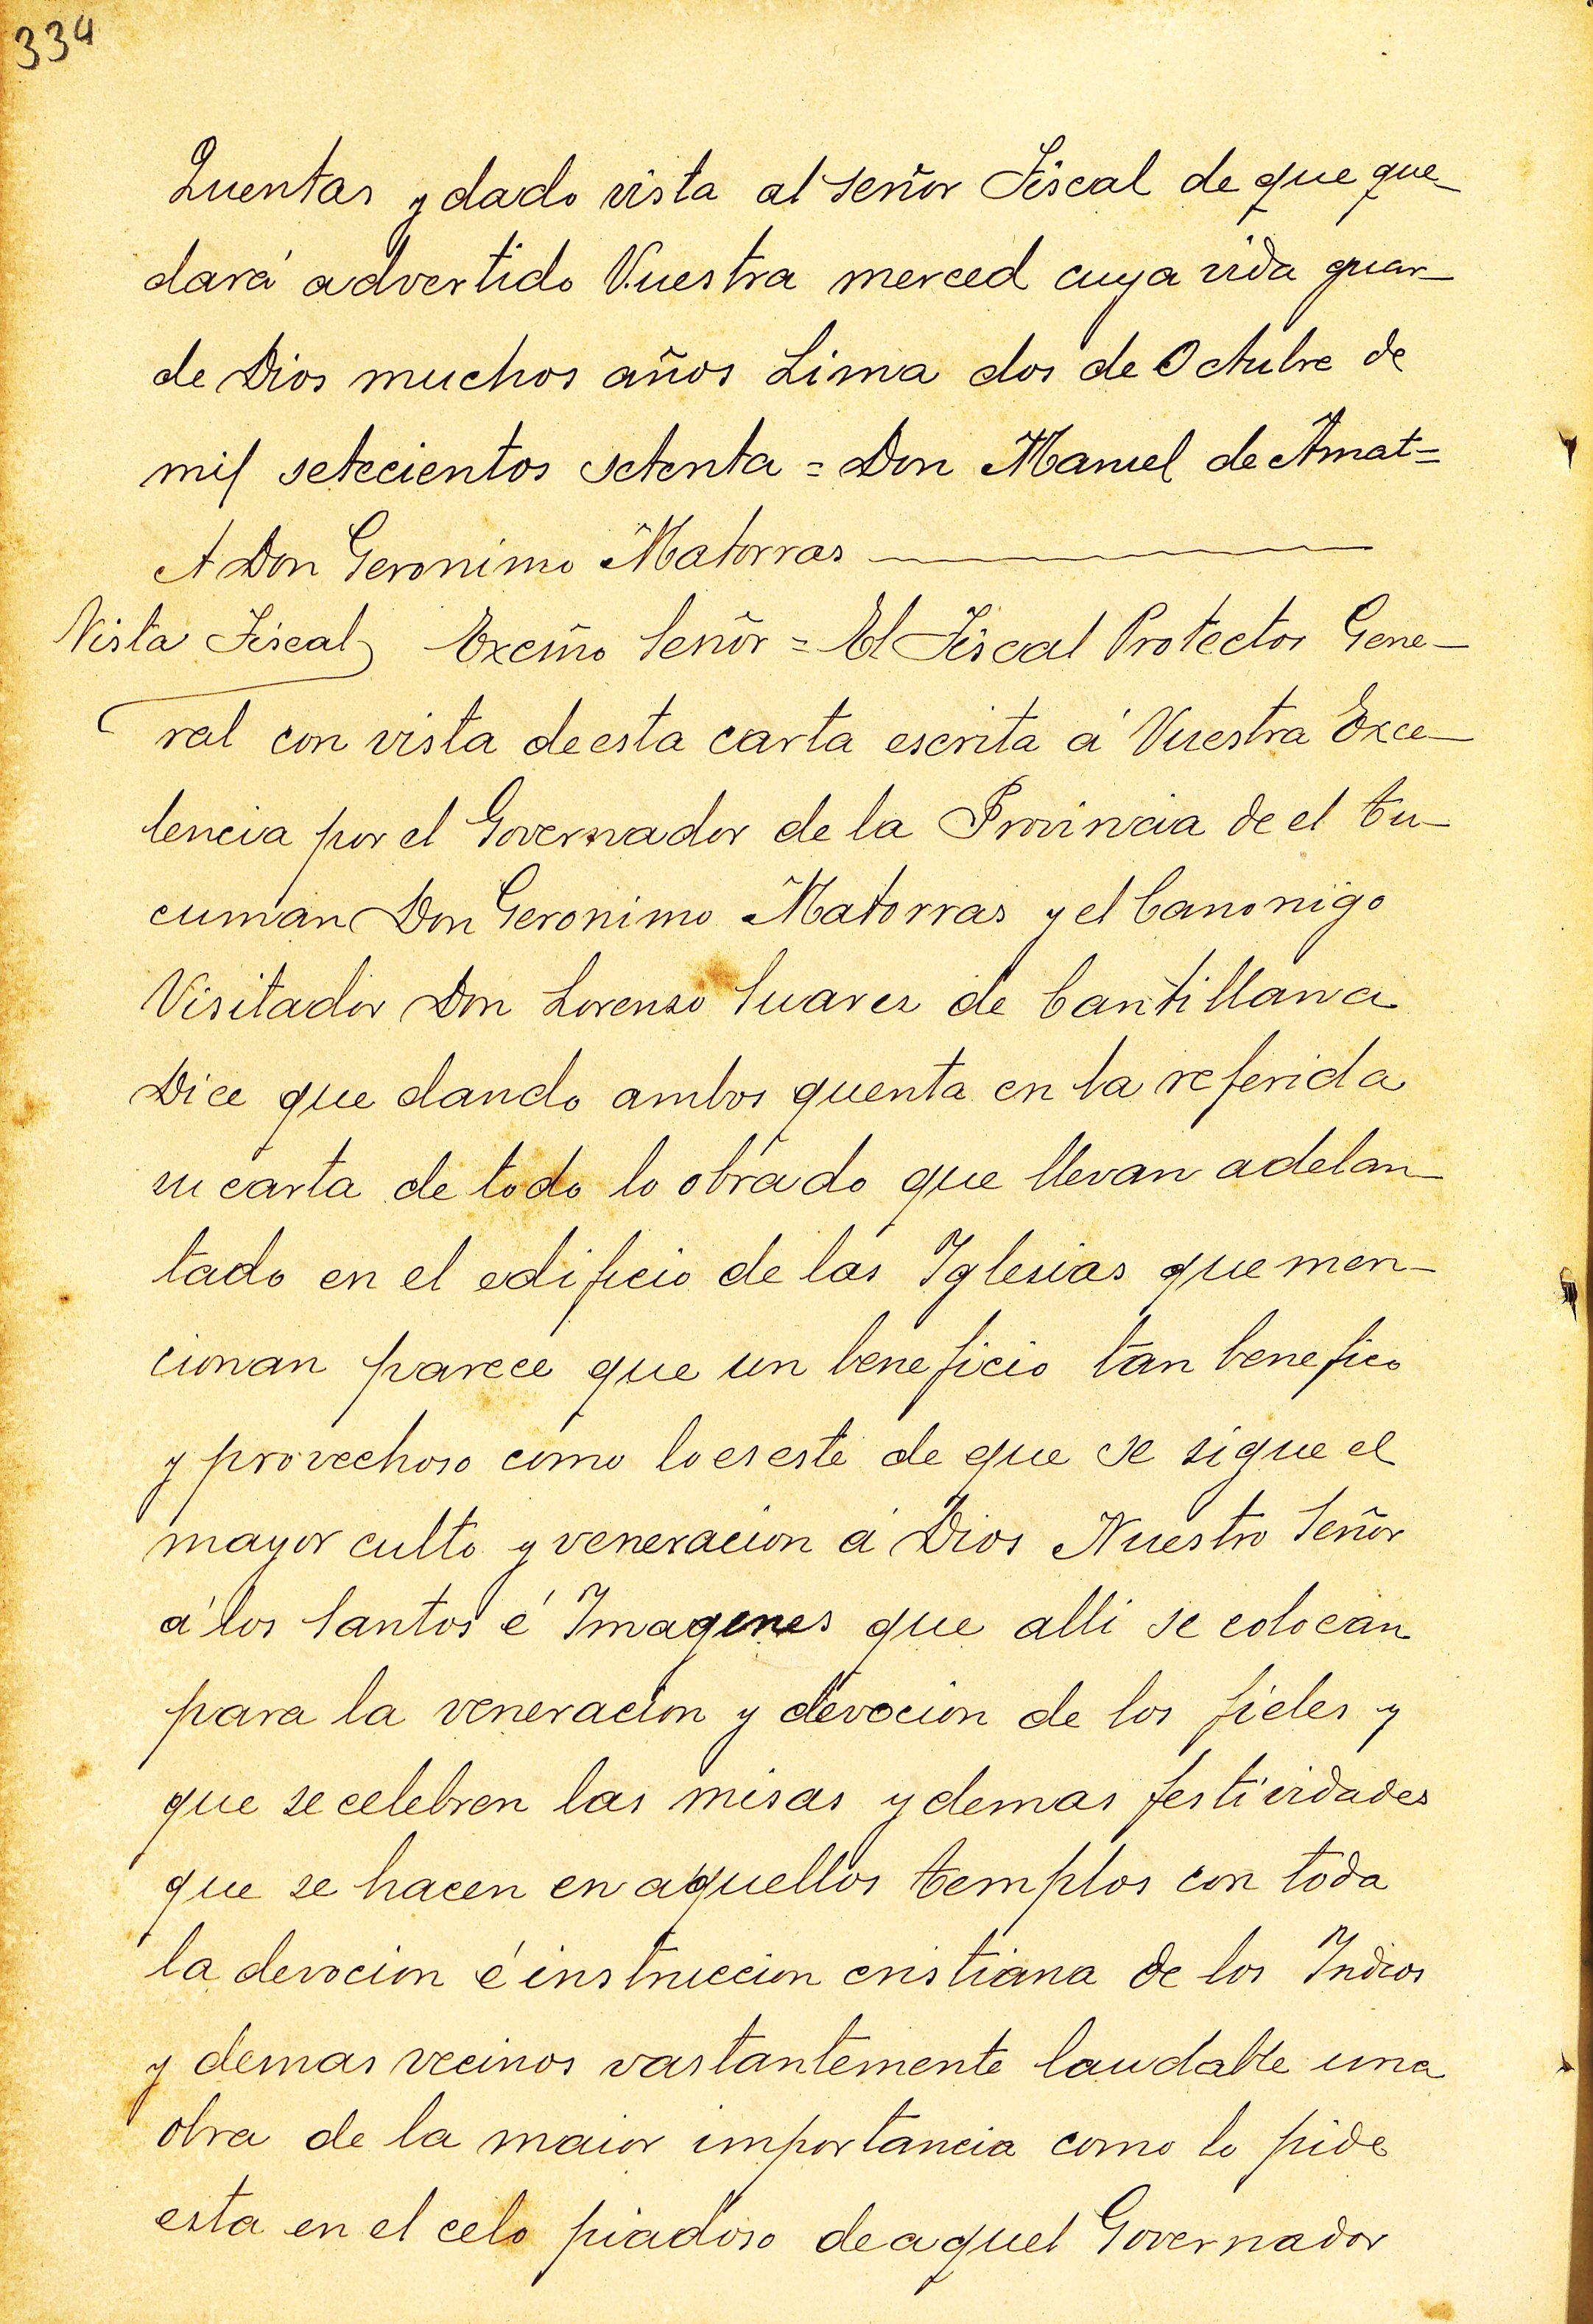 334
Quentas y dado vista al señor Fiscal de que que-
dará advertido Vuestra merced cuya vida guar-
de Dios muchos años Lima dos de Octubre de
mil setecientos setenta = Don Manuel de Amat =
A Don Geronimo Matorras
Vista Fiscal Excmõ Señor = El Fiscal Protector Gene-
ral con vista de esta carta escrita á Vuestra Exce-
lencia por el Governador de la Provincia de el tu-
cuman Don Geronimo Matorras y el Canonigo
Visitador Don Lorenzo Suares de Cantillana
Dice que dando ambos quenta en la referida
su carta de todo lo obrado que llevan adelan-
tado en el edificio de las Iglesias que men-
cionan parece que un beneficio tan benefico
y provechoso como lo es este de que se sigue el
mayor culto y veneracion á Dios Nuestro Señor
á los Santos é Imagenes que alli se colocan
para la veneracion y devocion de los fieles y
que se celebren las misas y demas festividades
que se hacen en aquellos templos con toda
la devocion é instruccion cristiana de los Indios
y demas vecinos vastantemente laudable una
obra de la maior importancia como lo pide
esta en el celo piadoso de aquel Governador